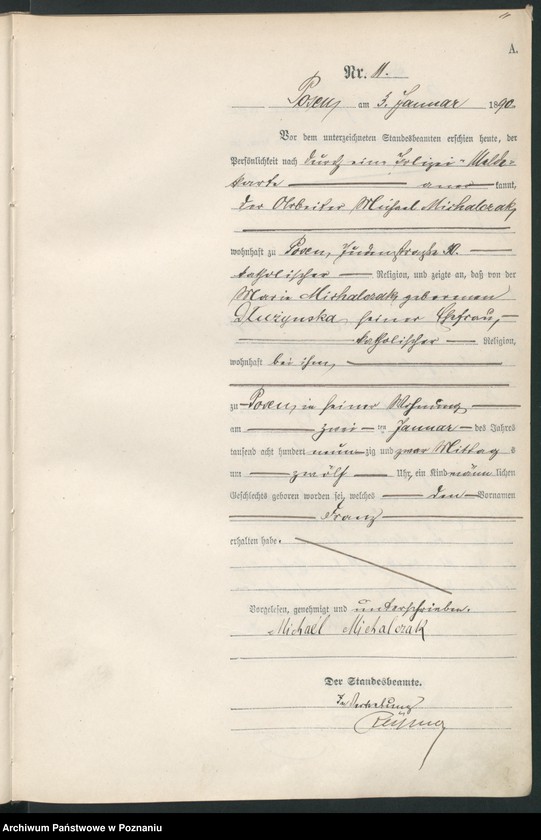 A.
Nr. 11.
Posen am 3. Januar 1890.
Vor dem unterzeichneten Standesbeamten erschien heute, der
Persönlichkeit nach durch eine Polizei-Melde-
karte aner kannt,
der Arbeiter Michael Michalczak,
wohnhaft zu Posen, Judenstraße 30.
katholischer Religion, und zeigte an, daß von der
Marie Michalczak geborenen
seiner Ehefrau,
katholischer Religion,
wohnhaft bei ihm,
zu Posen, in seiner Wohnung
am zwei ten Januar des Jahres
tausend acht hundert neun zig und zwar Mittag s
um zwölf Uhr, ein Kind männ lichen
Geschlechts geboren worden sei, welches den Vornamen
Franz
erhalten habe.
Vorgelesen, genehmigt und unterschrieben.
Michael Michalczak
Der Standesbeamte.
In Vertretung
Archiwum Państwowe w Poznaniu